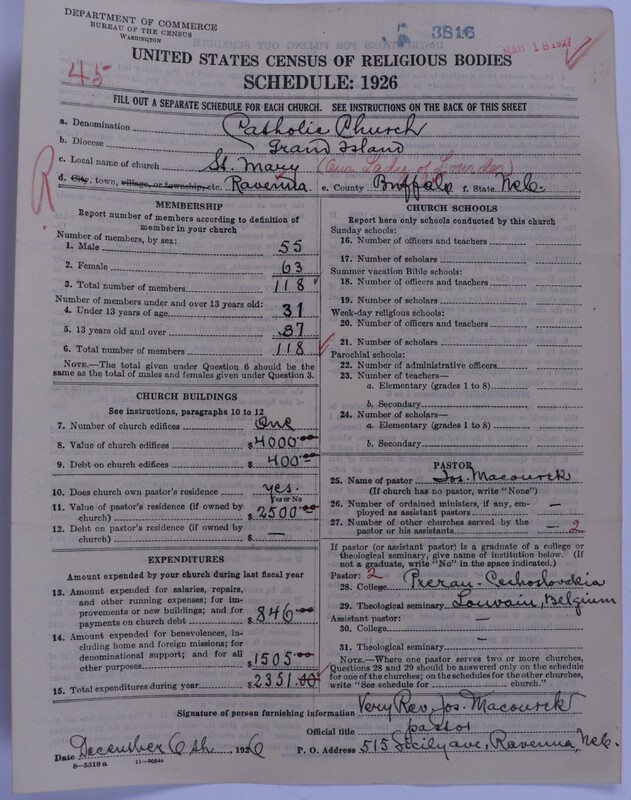 DEPARTMENT OF COMMERCE
BUREAU OF THE CENSUS
WASHINGTON
3816
MAR 18 1927
45
UNITED STATES CENSUS OF RELIGIOUS BODIES
SCHEDULE: 1926
FILL OUT A SEPARATE SCHEDULE FOR EACH CHURCH. SEE INSTRUCTIONS ON THE BACK OF THIS SHEET
a. Denomination Catholic Church
b. Diocese Grand Island
c. Local name of church St. Mary (Our Lady of Lourdes)
R
d. City, town, village, or township, etc. Ravenna e. County Buffalo f. State Neb.
MEMBERSHIP
Report number of members according to definition of
member in your church
Number of members, by sex:
1. Male 55
2. Female 63
3. Total number of members 118
Number of members under and over 13 years old:
4. Under 13 years of age 31
5. 13 years old and over 87
6. Total number of members 118
NOTE.—The total given under Question 6 should be
same as the total of males and females given under Question 3.
CHURCH BUILDINGS
See instructions, paragraphs 10 to 12
7. Number of church edifices One
8. Value of church edifices $4000.00
9. Debt on church edifices $400.—
10. Does church own pastor's residence yes.
Yes or No
11. Value of pastor's residence (if owned by
church) $2500.00
12. Debt on pastor's residence (if owned by
church) $ —
EXPENDITURES
Amount expended by your church during last fiscal year
13. Amount expended for salaries, repairs,
and other running expenses; for im-
provements or new buildings; and for
payments on church debt $846.00
14. Amount expended for benevolences, in-
cluding home and foreign missions; for
denominational support; and for all
other purposes $1505.00
15. Total expenditures during year $2351.00
CHURCH SCHOOLS
Report here only schools conducted by this church
Sunday schools:
16. Number of officers and teachers
17. Number of scholars
Summer vacation Bible schools:
18. Number of officers and teachers
19. Number of scholars
Week-day religious schools:
20. Number of officers and teachers
21. Number of scholars
Parochial schools:
22. Number of administrative officers
23. Number of teachers—
a. Elementary (grades 1 to 8)
b. Secondary
24. Number of scholars—
a. Elementary (grades 1 to 8)
b. Secondary
PASTOR
25. Name of pastor Jos. Macourek
(If church has no pastor, write "None")
26. Number of ordained ministers, if any, em-
ployed as assistant pastors —
27. Number of other churches served by the
pastor or his assistants — 2
If pastor (or assistant pastor) is a graduate of a college or
theological seminary, give name of institution below. (If
not a graduate, write "No" in the space indicated.)
Pastor: 2
28. College Prerau - Cechoslovakia
29. Theological seminary Louvain, Belgium
Assistant pastor: —
30. College
31. Theological seminary —
NOTE.—Where one pastor serves two or more churches,
Questions 28 and 29 should be answered only on the schedule
for one of the churches; on the schedules for the other churches,
write "See schedule for church."
Signature of person furnishing information Very Rev. Jos. Macourek
Official title pastor
Date December 6th, 1926 P. O. Address 515 Sicily ave, Ravenna, Neb.
8—5518a 11—9064